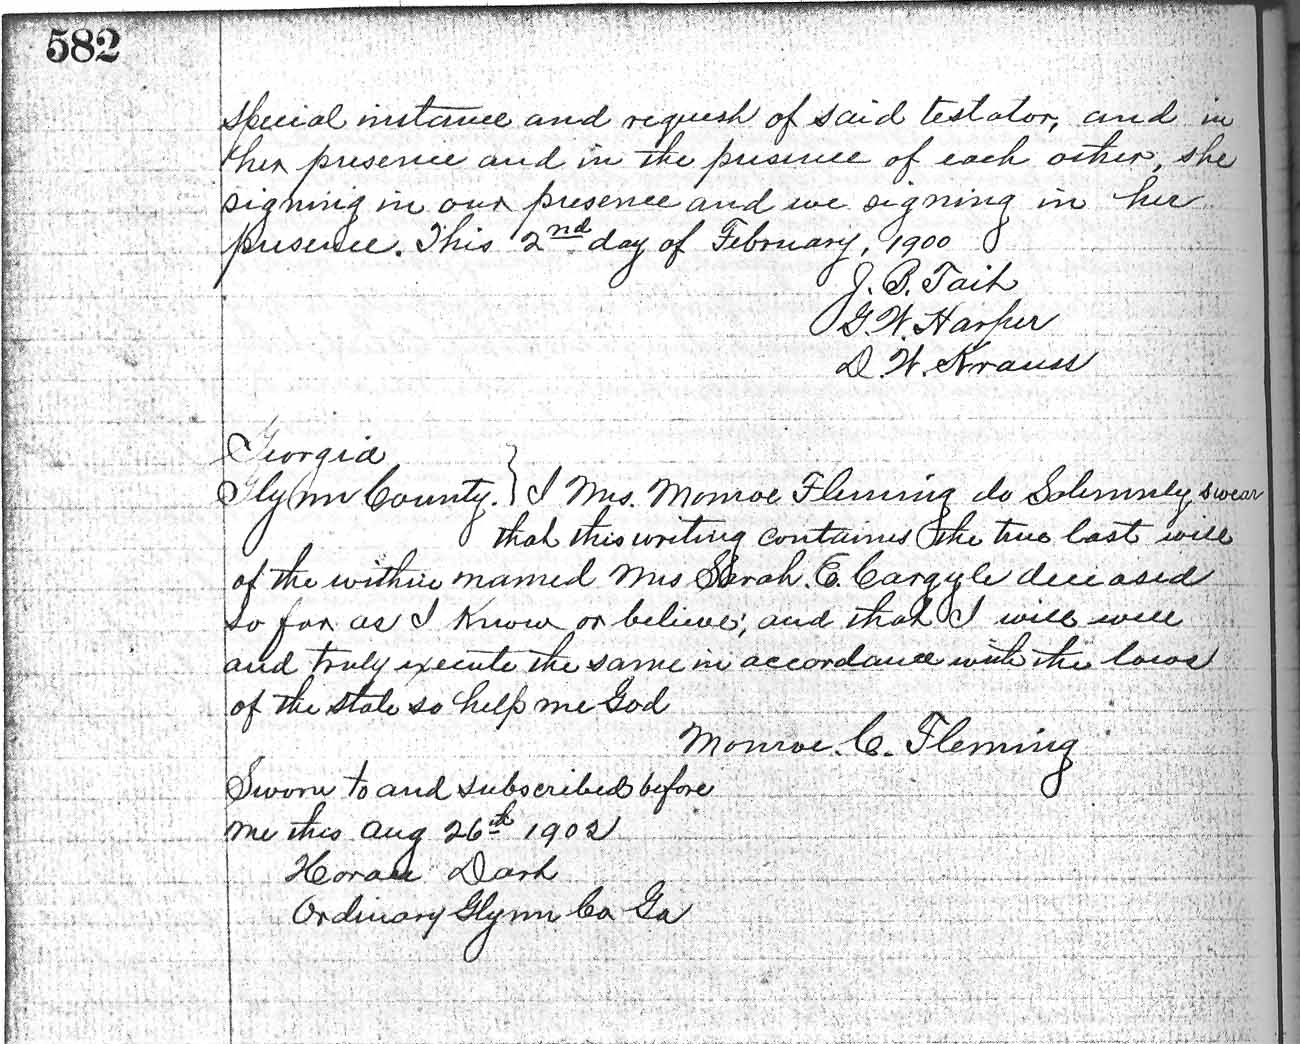 582
special instance and request of said testator, and in
her presence and in the presence of each other, she
signing in our presence and we signing in her
presence. This 2nd day of February, 1900
J. B. Tait
G. W. Harper
D. W. Krauss
Georgia
Glynn County. } I Mrs. Monroe Fleming do Solemnly swear
that this writing contains the true last will
of the within named Mrs Sarah. E. Cargyle deceased
so far as I know or believe; and that I will well
and truly execute the same in accordance with the laws
of the state so help me God
Monroe. C. Fleming
Sworn to and subscribed before
me this Aug 26th 1902
Horace Dart
Ordinary Glynn Co Ga